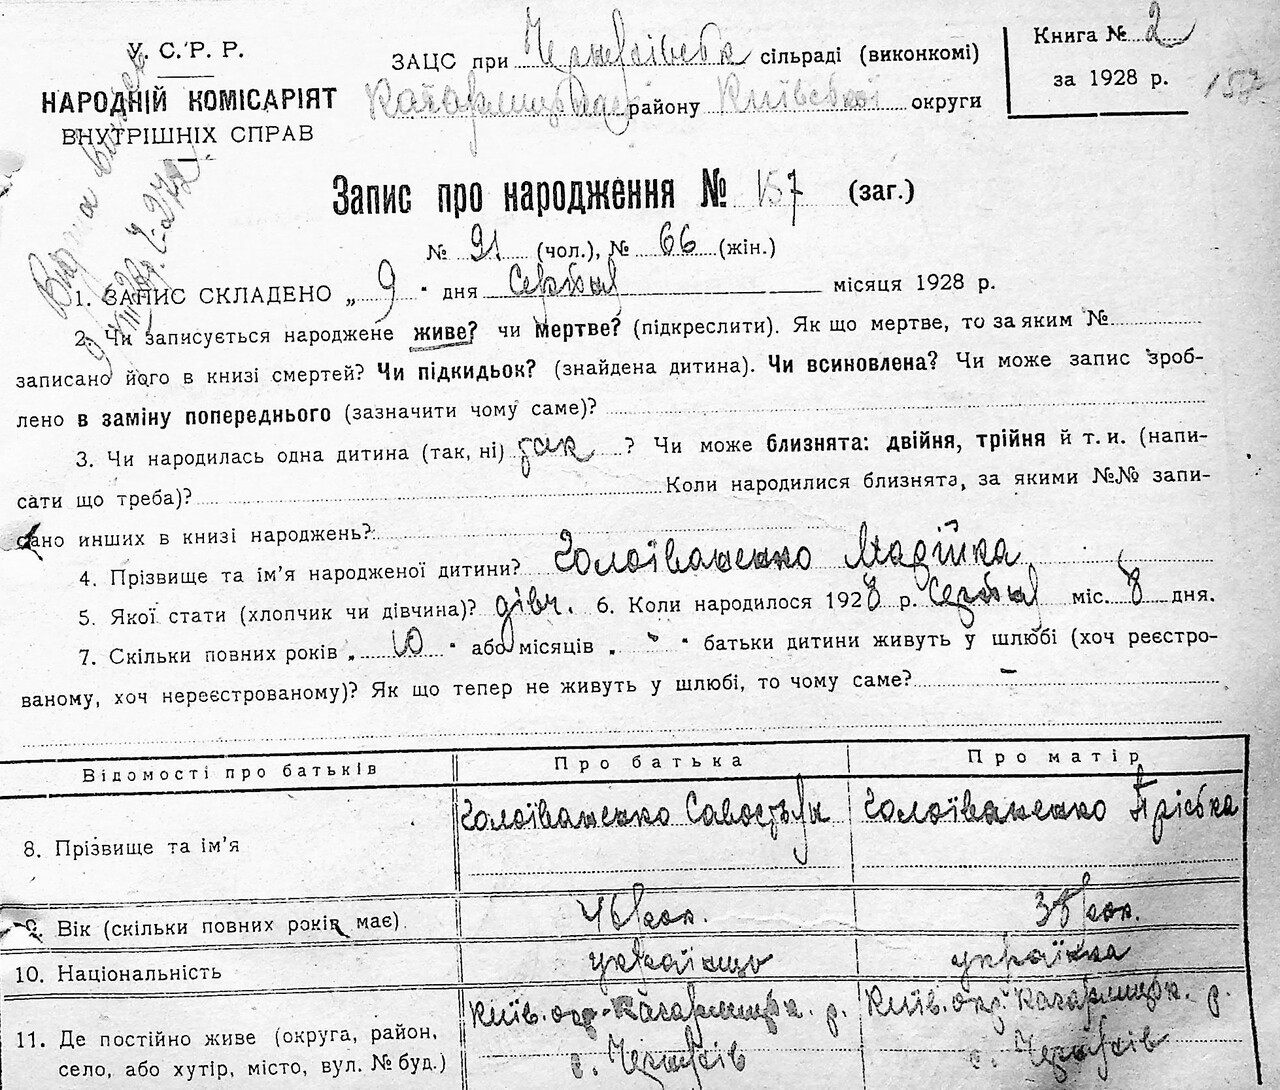 У. С. Р. Р.
НАРОДНІЙ КОМІСАРІЯТ
ВНУТРІШНІХ СПРАВ
ЗАЦС при Черняхівськ сільраді (виконкомі)
Кагарлицького району Київської округи
Книга № 2
за 1928 р.
157
Запис про народження № 157 (заг.)
№ 91 (чол.), № 66 (жін.)
1. ЗАПИС СКЛАДЕНО „ 9 " дня Серпня місяця 1928 р.
2. Чи записується народжене живе? чи мертве? (підкреслити). Як що мертве, то за яким №
записано його в книзі смертей? Чи підкидьок? (знайдена дитина). Чи всиновлена? Чи може запис зроб-
лено в заміну попереднього (зазначити чому саме)?
3. Чи народилась одна дитина (так, ні) так ? Чи може близнята: двійня, трійня й т. и. (напи-
сати що треба)? Коли народилися близнята, за якими №№ запи-
сано инших в книзі народжень?
4. Прізвище та ім'я народженої дитини? Голоіваненко Марійка
5. Якої стати (хлопчик чи дівчина)? дівч. 6. Коли народилося 1928 р. Серпня міс. 8 дня.
7. Скільки повних років „ 10 " або місяців „ " батьки дитини живуть у шлюбі (хоч реєстро-
ваному, хоч нереєстрованому)? Як що тепер не живуть у шлюбі, то чому саме? –
Відомості про батьків Про батька Про матір
8. Прізвище та ім'я Голоїваненко Савостьян Голоїваненко Пріська
9. Вік (скільки повних років має) 46 рок. 38 рок.
10. Національність українць українка
11. Де постійно живе (округа, район,
село, або хутір, місто, вул. № буд.)
Київ. окр. Кагарлицьк. р.
с. Черняхів
Київ. окр. Кагарлицьк. р.
с. Черняхів